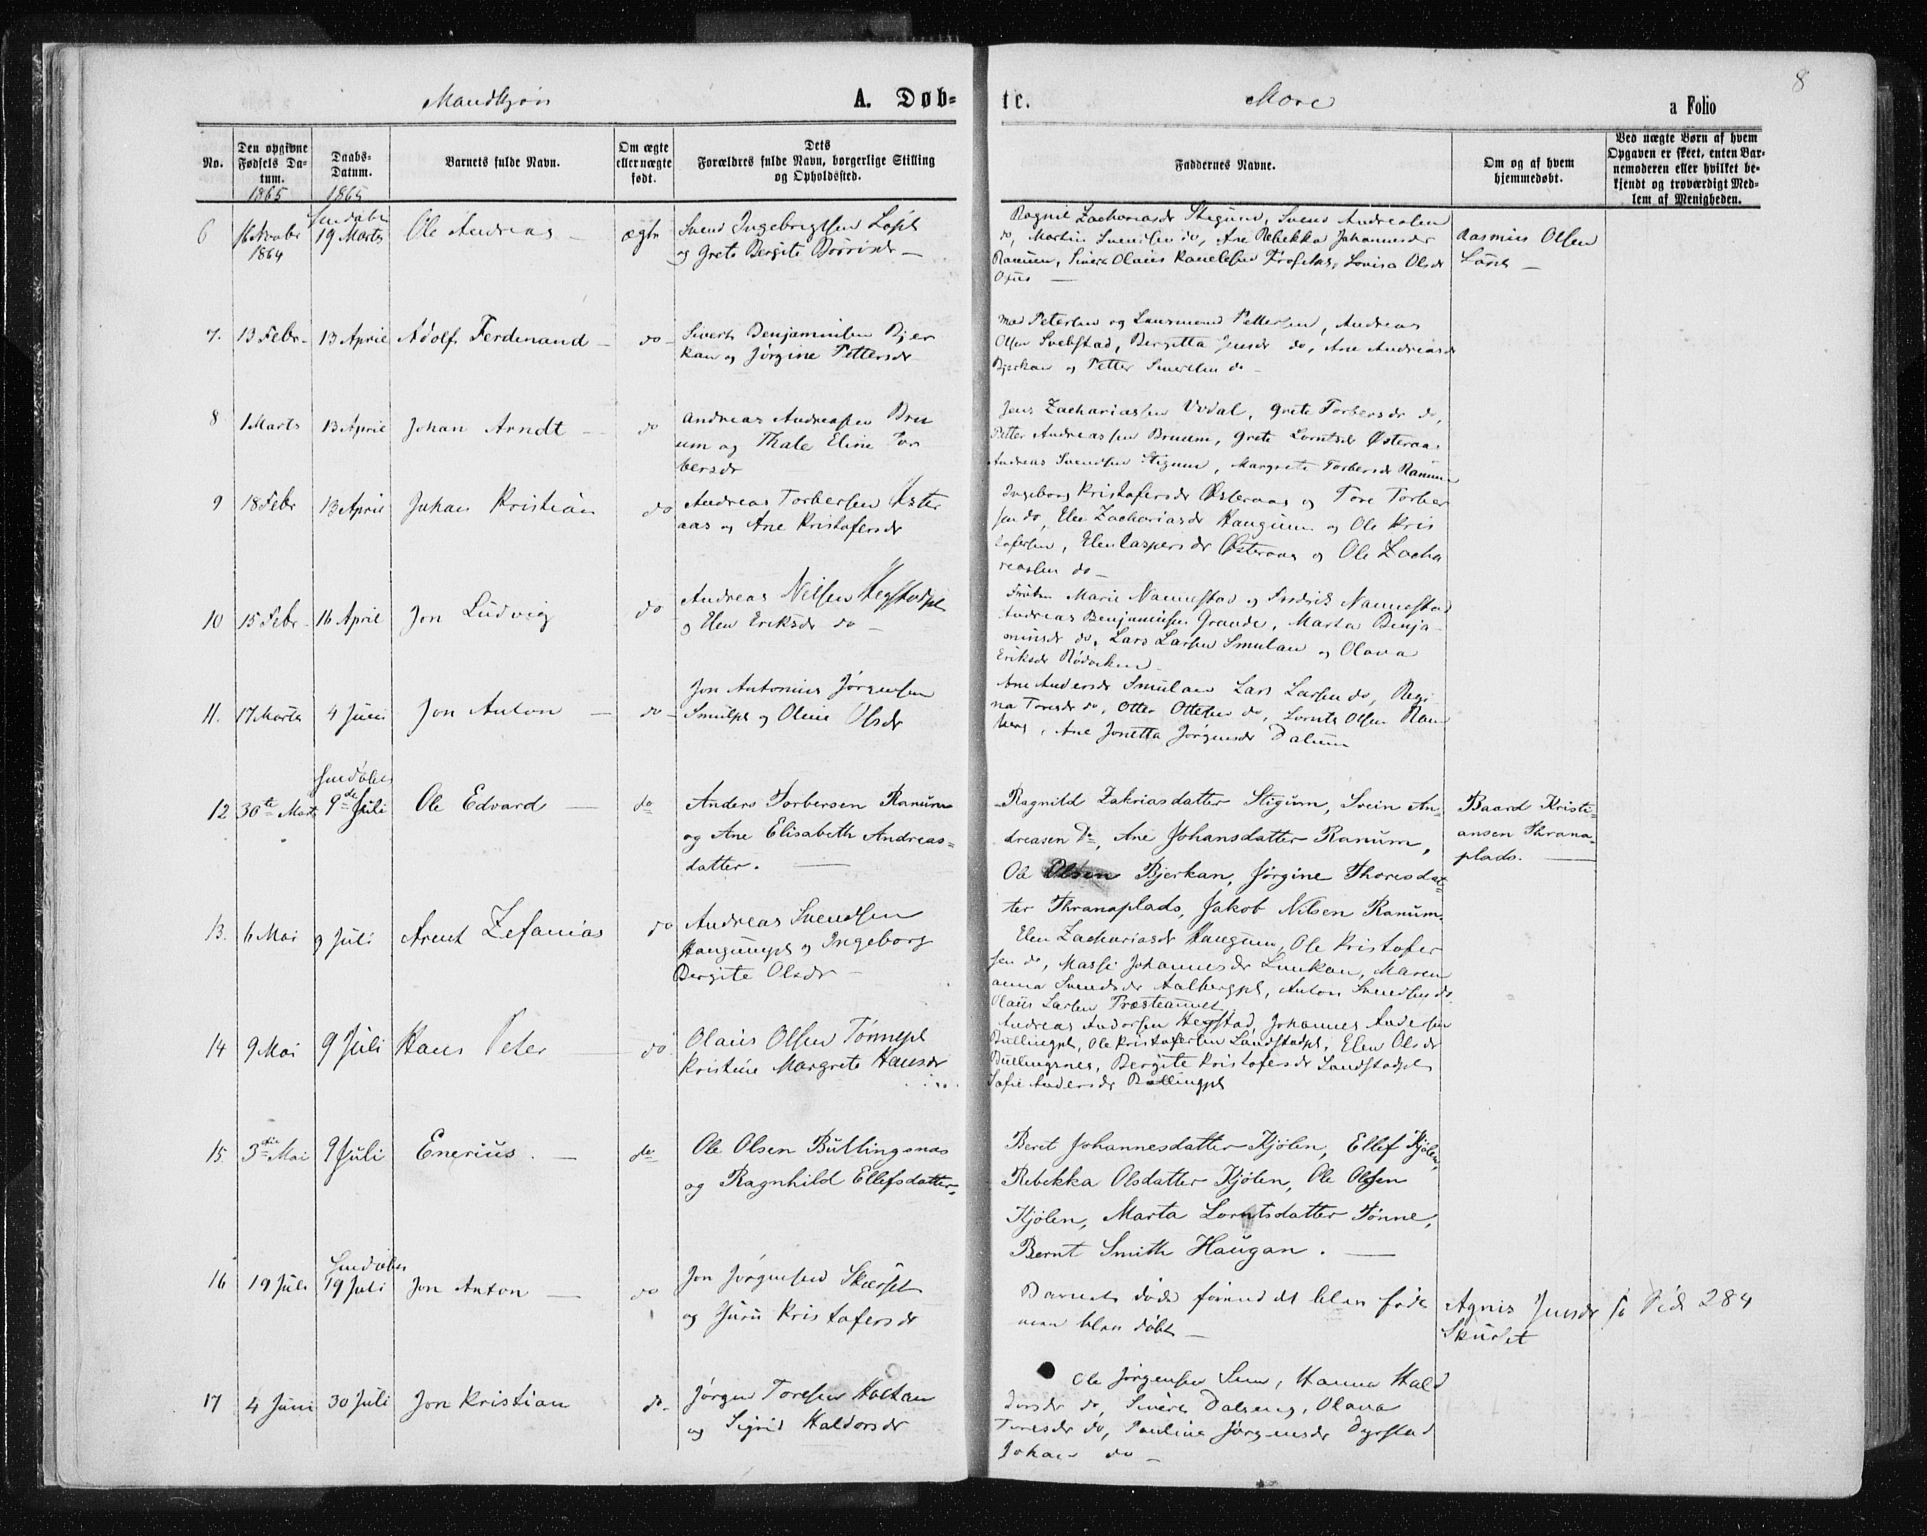 8
Mandkjøn
A. Døbte.
a Folio
No.
Den opgivne Fødsels Datum.
1865
Daabs-Datum.
1865
Barnets fulde Navn.
Om ægte eller uægte født.
Dets Forældres fulde Navn, borgerlige Stilling og Opholdssted.
Faddernes Navne.
Om og af hvem hjemmedøbt.
Ved uægte Børn af hvem Opgaven er skeet, enten Barnemoderen eller hvilket bekjendt og troværdigt Medlem af Menigheden.
6
16 Novbr 1864
19 Marts
Ole Andreas
ægte
Svend Ingebrigtsen
og Grete Bergite
Ragnil Zachariasdr Stigum, Svend Andreasen
do, Martin Svendsen do, Ane Rebekka Johannesdr
Ranum, Sivert Olaus, Lovisa Olsdr
Rasmus Olsen
7.
13 Febr
13 April
Adolf Ferdinand
do
Sivert Benjaminsen Bjer
kan og Jørgine Pettersdr
Petersen og Pettersen, Andreas
Olsen Svebstad, Bergitta Jensdr do, Ane Andreasdr
Bjerkan og Petter Sivertsen do
8
1 Marts
13 April
Johan Arndt
do
Andreas Andreasen Bru
um og Thale Eline Tor
bersdr
Jens Zachariasen, Grete Torbersdr do,
Petter Andreassen Bruum, Grete Lorntsdr Østeraas
Andreas Svendsen Stigum, Margrete Torbersdr Ranum
9
18 Febr
13 April
Johan Kristian
do
Andreas Torbersen Øster
aas og Ane Kristofersdr
Ingeborg Kristofersdr Østeraas og Tore Torber
sen do, Elen Zachariasdr Haugum og Ole Kris
tofersen, Elen Caspersdr Østeraas og Ole Zacha
riassen do
10
15 Febr
16 April
Jon Ludvig
do
Andreas Nilsen Hegstadpl
og Elen Eriksdr do
Marie Nannestad og Fredrik Nannestad
Andreas Benjaminsen Grande, Marta Benja
minsdr do, Lars Larsen Smulan og Olava
Eriksdr
11.
17 Marts
4 Juni
Jon Anton
do
Jon Antonius Jørgensen
Smulpl og Oline Olsdr
Ane Andersdr Smulan Lars Larsen do, Regi
na Toresdr do, Otter Ottesen do, Lornts Olsen Ram
berg, Ane Jonetta Jørgensdr Dalum
12
30te Mai
9de Juli
Ole Edvard
do
Anders Torbersen Ranum
og Ane Elisabeth Andreas-
datter.
Ragnild Zakriasdatter Stigum, Svein An-
dreasen do, Ane Johansdatter Ranum,
Ole Olsen Bjerkan, Jørgine Thoresdat-
ter Thranaplads, Jakob Nilsen Ranum.
Baard Kristi-
ansen Thrana-
plads.
13.
6 Mai
9 Juli
Arent Zefanias
do
Andreas Svendsen
Haugumpl og Ingeborg
Bergite Olsdr
Elen Zachariasdr Haugum, Ole Kristofer
sen do, Massi Johannesdr, Maren
anna Svendsdr Aalbergpl, Anton Svendsen do
Olaus Larsen
14
9 Mai
9 Juli
Hans Peter
do
Olaus Olsen Tønnepl
Kristine Margrete Hansdr
Andreas Andersen Hegstad, Johannes Andersen
Bullingpl, Ole Kristofersen Landstadpl, Elen Olsdr
Bullingsnes, Bergite Kristofersdr Landstadpl
Sofie Andersdr Bullingpl
15.
3die Mai
9 Juli
Enerius.
do
Ole Olsen Bullingsnas
og Ragnhild Ellefsdatter.
Beret Johannesdatter Kjølen, Ellef Kjølen,
Rebekka Olsdatter Kjølen, Ole Olsen
Kjølen, Marta Lorntsdatter Tønne,
Bernt Smith Haugan.
16
19 Juli
19 Juli
Jon Anton
do
Jon Jørgensen
og Juru Kristofersdr
Barnet døde førend det blev
men blev døbt
Agnis Jensdr
Side 284
17
4 Juni
30 Juli
Jon Kristian
do
Jørgen Toresen Holtan
og Sigrid Haldorsdr
Ole Jørgensen, Hanna Hald
dorsdr do, Sivert Dalseng, Olana
Toresdr do, Pauline Jørgensdr Dyrstad
Johan do